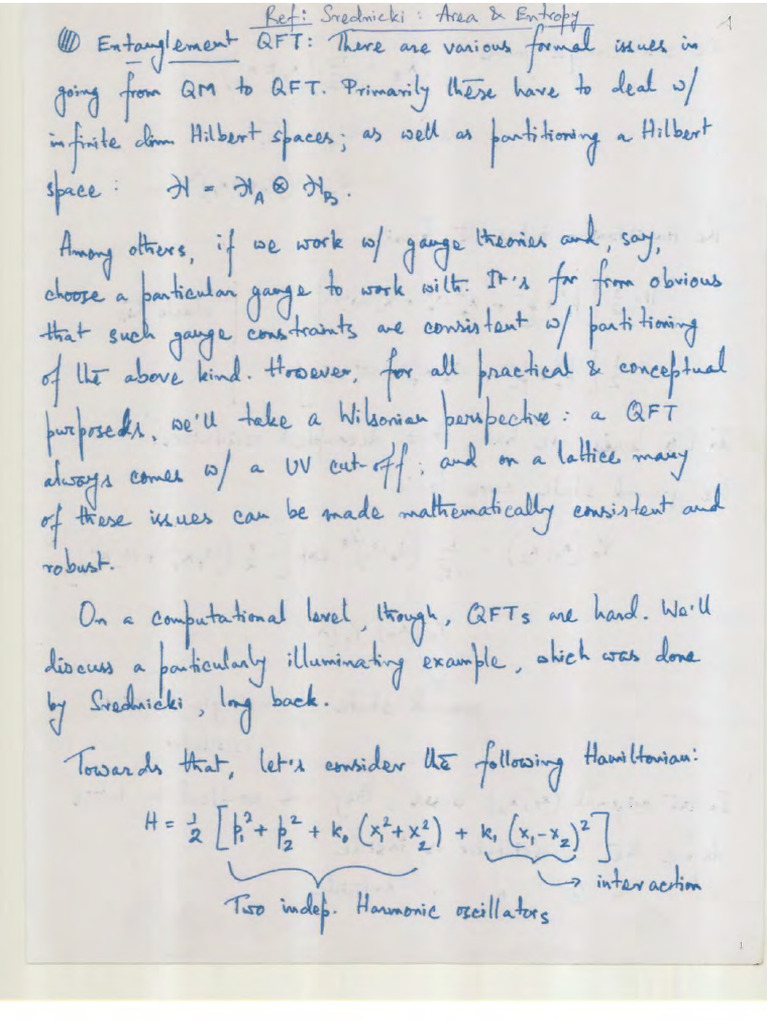 Ref: Srednicki: Area & Entropy
1
Entanglement QFT: There are various formal issues in
going from QM to QFT. Primarily these have to deal w/
infinite dim Hilbert spaces; as well as partitioning a Hilbert
space: ℋ = ℋ_A ⊗ ℋ_B.
Among others, if we work w/ gauge theories and, say,
choose a particular gauge to work with. It's far from obvious
that such gauge constraints are consistent w/ partitioning
of the above kind. However, for all practical & conceptual
purposeds, we'll take a Wilsonian perspective: a QFT
always comes w/ a UV cut-off; and on a lattice many
of these issues can be made mathematically consistent and
robust.
On a computational level, though, QFTs are hard. We'll
discuss a particularly illuminating example, which was done
by Srednicki, long back.
Towards that, let's consider the following Hamiltonian:
H = 1/2 [p₁² + p₂² + k₀ (x₁² + x₂²) + k₁ (x₁ - x₂)²]
→ interaction
Two indep. Harmonic oscillators
1